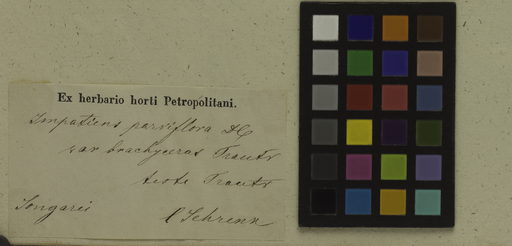 Ex herbario horti Petropolitani.
Impatiens parviflora DC
var brachyceras Trautv
teste Trautv
Songarei
C Schrenk